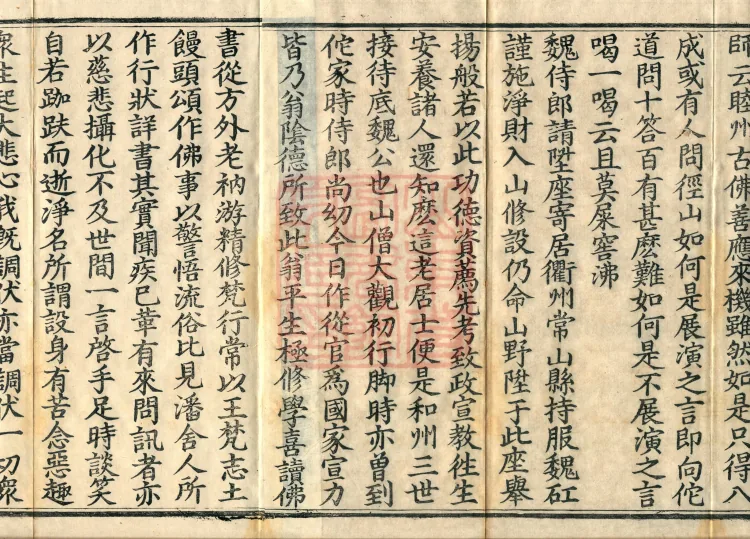 師云睦州古佛善應來機雖然如是只得八
成或有人問徑山如何是展演之言即向佗
道問十答百有甚麽難如何是不展演之言
喝一喝云且莫屎窖沸
魏侍郎請陞座寄居衢州常山縣持服魏矼
謹施淨財入山修設仍命山野陞于此座舉
揚般若以此功德資薦先考致政宣教徃生
安養諸人還知麽這老居士便是和州三世
接待底魏公也山僧大觀初行脚時亦曽到
佗家時侍郎尚幼今日作從官爲國家宣力
皆乃翁陰德所致此翁平生極修學喜讀佛
書從方外老衲游精修梵行常以王梵志土
饅頭頌作佛事以警悟流俗比見潘舍人所
作行狀詳書其實聞疾已革有來問訊者亦
以慈悲攝化不及世間一言啓手足時談笑
自若跏趺而逝淨名所謂設身有苦念惡趣
衆生起大悲心我旣調伏亦當調伏一切衆